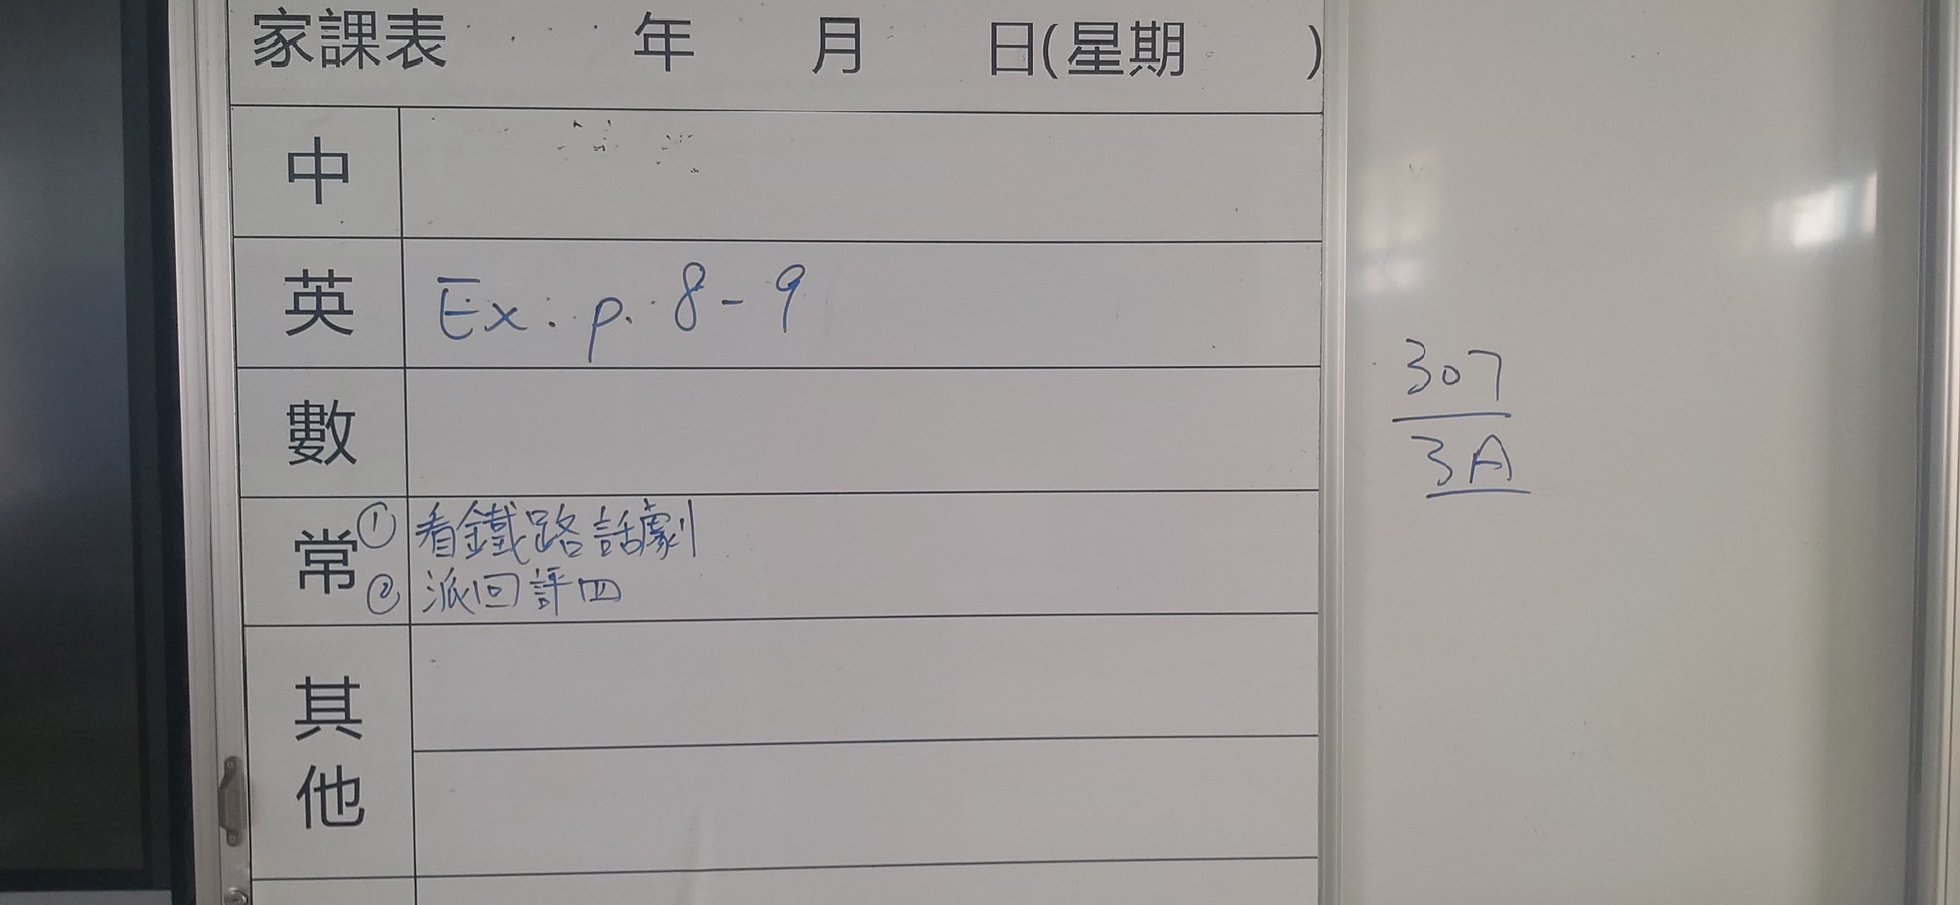 家課表 年 月 日(星期 )
中
英 Ex: p. 8-9
數
常 ① 看鐵路話劇
② 派回評四
其他
307
3A